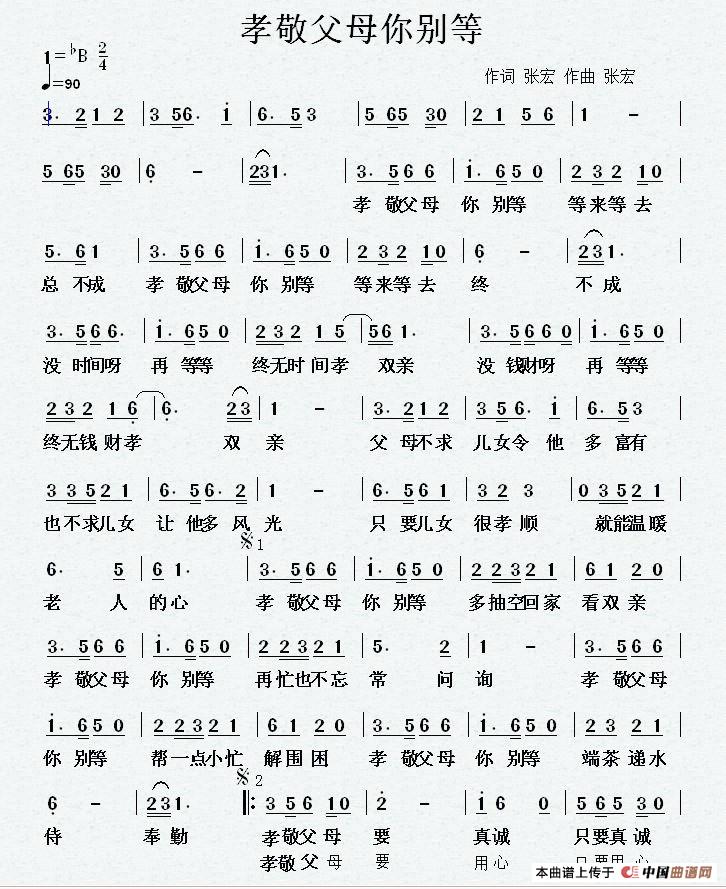 孝敬父母你别等
1=♭B 2/4
♩=90
作词 张宏 作曲 张宏
3. 2 1 2 | 3 5 6. i | 6. 5 3 | 5 65 30 | 2 1 56 | 1 - |
5 65 30 | 6 - | 231. | 3. 5 6 6 | i. 6 5 0 | 2 3 2 10 |
孝 敬父母 你 别等 等来等去
5. 6 1 | 3. 5 6 6 | i. 6 5 0 | 2 3 2 10 | 6 - | 231. |
总 不成 孝 敬父母 你 别等 等来等去 终 不成
3. 5 6 6. | i. 6 5 0 | 2 3 2 1 5 | 561. | 3. 5 6 6 0 | i. 6 5 0 |
没 时间呀 再 等等 终无时间孝 双亲 没 钱财呀 再 等等
2 3 2 1 6 | 6. 2 3 | 1 - | 3. 2 1 2 | 3 5 6. i | 6. 5 3 |
终无钱财孝 双 亲 父 母不求 儿女令 他 多 富有
3 3 5 2 1 | 6. 5 6. 2 | 1 - | 6. 5 6 1 | 3 2 3 | 0 3 5 2 1 |
也不求儿女 让 他多 风 光 只 要儿女 很孝顺 就能温暖
𝄋1
6. 5 | 6 1. | 3. 5 6 6 | i. 6 5 0 | 2 2 3 2 1 | 6 1 2 0 |
老 人 的心 孝 敬父母 你 别等 多抽空回家 看双亲
3. 5 6 6 | i. 6 5 0 | 2 2 3 2 1 | 5. 2 | 1 - | 3. 5 6 6 |
孝 敬父母 你 别等 再忙也不忘 常 问 询 孝 敬父母
i. 6 5 0 | 2 2 3 2 1 | 6 1 2 0 | 3. 5 6 6 | i. 6 5 0 | 2 3 2 1 |
你 别等 帮一点小忙 解围困 孝 敬父母 你 别等 端茶递水
𝄋2
6 - | 231. ‖: 3 5 6 10 | 2 - | i 6 0 | 5 65 30 |
侍 奉勤 孝敬父母 要 真诚 只要真诚
孝敬父母 要 用心 只要用心
本曲谱上传于 中国曲谱网